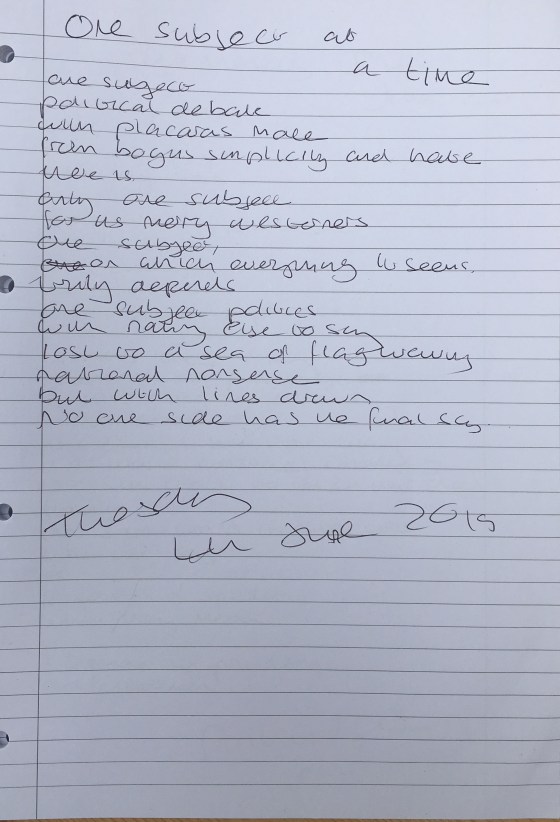 One subject at
a time
one subject
political debate
with placards made
from bogus simplicity and hate
there is
only one subject
for us merry westerners
One subject,
one on which everything it seems,
truly depends
one subject politics
with nothing else to say
lost to a sea of flag waving
national nonsense
but with lines drawn
No one side has the final say.
Tuesday
4th June 2019